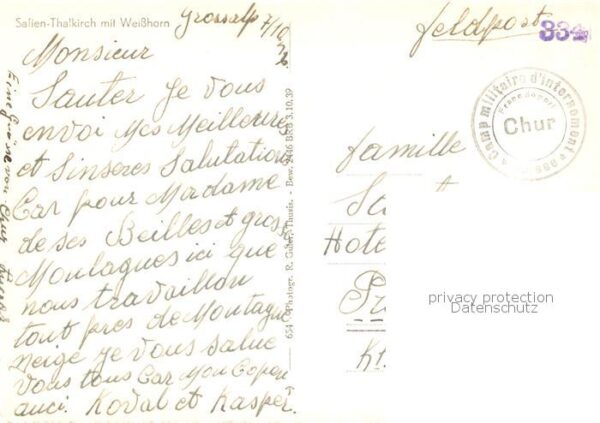 Safien-Thalkirch mit Weißhorn
Grossalp 7/10
Monsieur
Sauter Je vous
envoi Mes Meilleures
et Sinseres Salutations
Car pour Madame
de ses Beilles et gros
Montagnes ici que
nous travaillon
tout pres de Montagne
neige je vous salue
Vous tous Car Mon Copen
auci. Koval et Kasper.
654 Photogr. R. Guler, Thusis. - Bew. 2446 BRB 3.10.39
feldpost
334
Camp militaire d'internement
Franc de port
Chur
famille
Hote
privacy protection
Datenschutz